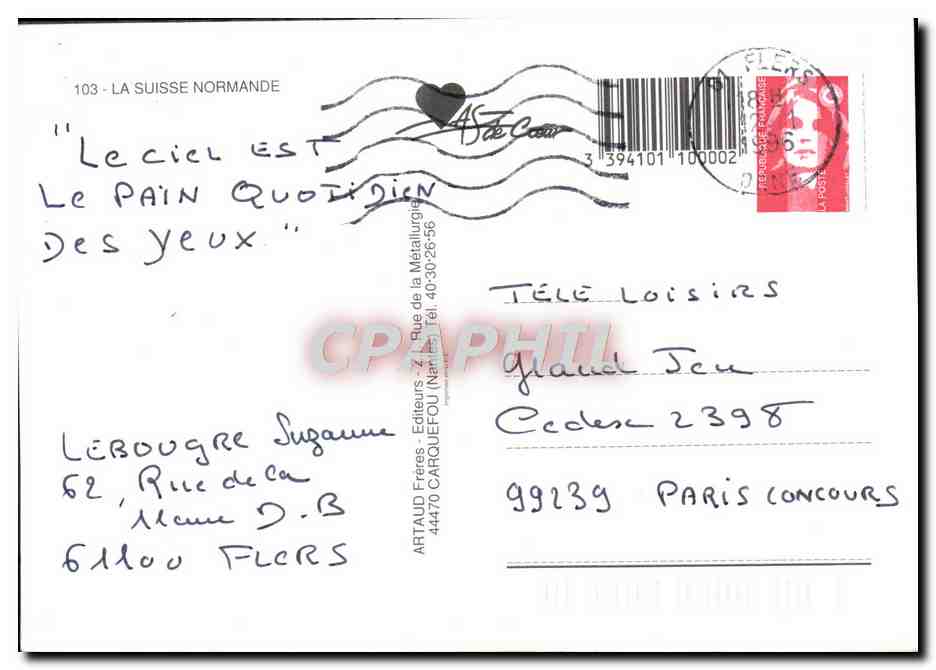 103 - LA SUISSE NORMANDE
AS de Cœur
3 394101 100002
61 FLERS
1996
ORNE
REPUBLIQUE FRANÇAISE
LA POSTE
"Le ciel EST
Le PAIN QUOTIDIEN
Des yeux"
ARTAUD Frères - Editeurs - Z.I. Rue de la Métallurgie
44470 CARQUEFOU (Nantes) Tél. 40·30·26·56
CPAPHIL
TÉLÉ LOISIRS
Grand Jeu
Cedex 2398
99239 PARIS CONCOURS
LEBOUGRE Suzanne
62, Rue de la
D.B
61100 FLERS